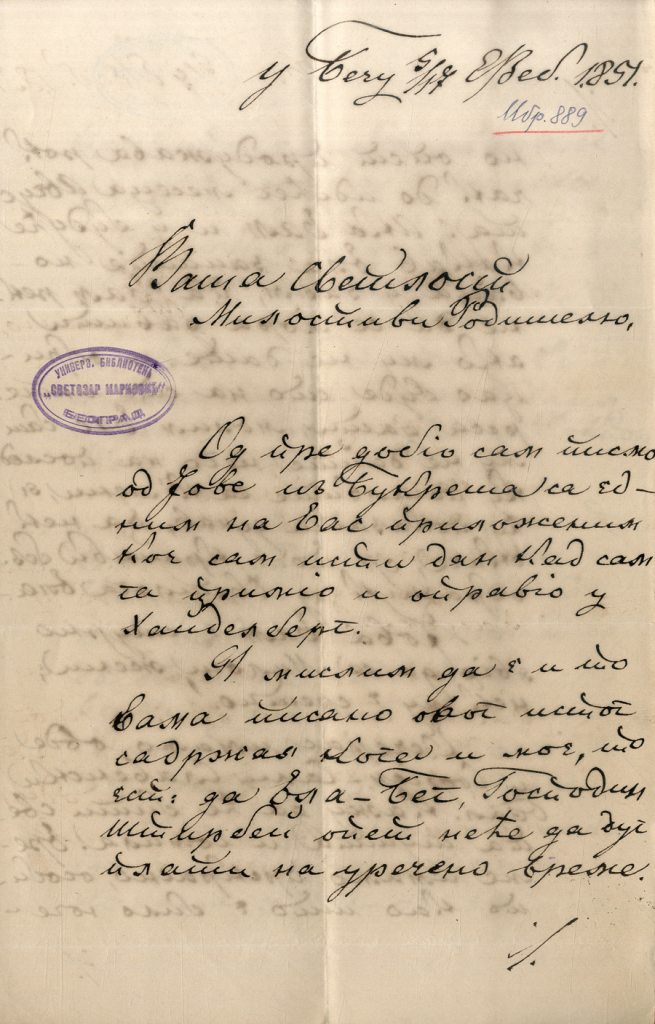 у Бечу 5/17 Феб. 1851.
Ибр. 889
Ваша Светлост
Милостиви Родителю,
УНИВЕРЗ. БИБЛИОТЕКА
„СВЕТОЗАР МАРКОВИЋ“
БЕОГРАД
Од пре добіо сам писмо
од Јове изъ Букрешта са ед-
ним на Вас приложеним
кое сам исти дан кад сам
га приміо и оправіо у
Хаиделберг.
Я мислим да е и то
Вама писано овог истог
садржая кога и мое, то
ест: да Ђла-Бег, Господин
Штирбеи опет неће да дуг
плати на уречено време.